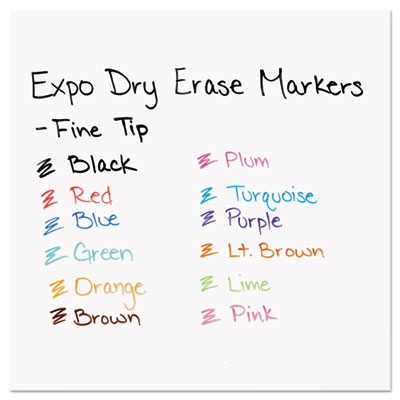 Expo Dry Erase Markers
- Fine Tip
Black
Red
Blue
Green
Orange
Brown
Plum
Turquoise
Purple
Lt. Brown
Lime
Pink